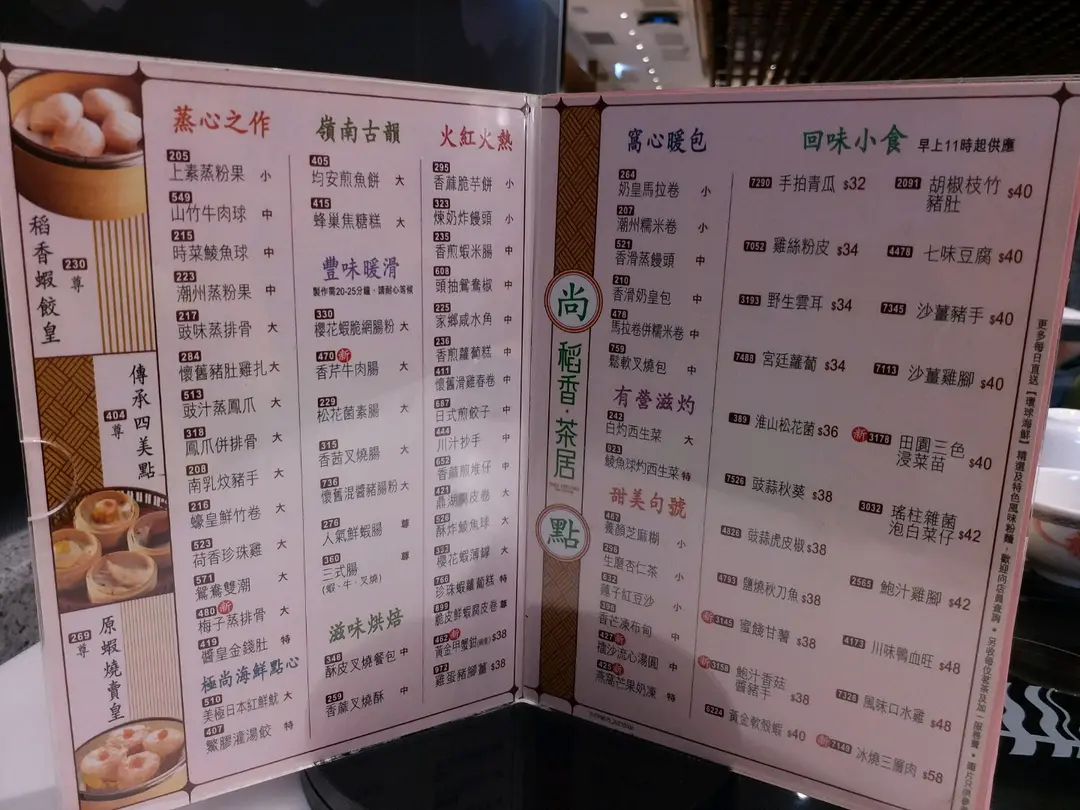 稻香蝦餃皇
230 尊
傳承四美點
404 尊
原蝦燒賣皇
269 尊
蒸心之作
205 上素蒸粉果 小
549 山竹牛肉球 中
215 時菜鯪魚球 中
223 潮州蒸粉果 中
217 豉味蒸排骨 大
284 懷舊豬肚雞扎 大
513 豉汁蒸鳳爪 大
318 鳳爪併排骨 大
208 南乳炆豬手 大
216 蠔皇鮮竹卷 大
523 荷香珍珠雞 大
571 鴛鴦雙潮 大
480 新 梅子蒸排骨 大
419 醬皇金錢肚 特
極尚海鮮點心
510 美極日本紅鮮魷 大
407 繁膠灌湯餃 特
嶺南古韻
405 均安煎魚餅 大
415 蜂巢焦糖糕 大
豐味暖滑
製作需20-25分鐘、請耐心等候
330 櫻花蝦脆網腸粉 大
470 新 香芹牛肉腸 大
229 松花菌素腸 大
315 香茜叉燒腸 大
736 懷舊混醬豬腸粉 大
276 人氣鮮蝦腸 尊
360 三式腸 尊
(蝦、牛、叉燒)
滋味烘焙
348 酥皮叉燒餐包 中
259 香蔴叉燒酥 中
火紅火熱
295 香蔴脆芋餅 小
323 煉奶炸饅頭 小
235 香煎蝦米腸 中
608 頭抽鴛鴦椒 中
225 家鄉咸水角 中
236 香煎蘿蔔糕 中
411 懷舊滑雞春卷 中
587 日式煎餃子 中
444 川汁抄手 中
652 香蔴煎堆仔 中
421 鼎湖腐皮卷 大
526 酥炸鯪魚球 大
357 櫻花蝦薄罉 大
756 珍珠蝦蘿蔔糕 特
899 脆皮鮮蝦腐皮卷 尊
462 新 黃金甲蟹鉗(兩隻) $38
973 雞蛋豬腳薑 $38
尚
稻香·茶居
點
窩心暖包
264 奶皇馬拉卷 小
207 潮州糯米卷 小
521 香滑蒸饅頭 中
210 香滑奶皇包 中
478 馬拉卷併糯米卷 中
759 鬆軟叉燒包 中
有營滋灼
242 白灼西生菜 大
623 鯪魚球灼西生菜 特
甜美句號
467 養顏芝麻糊 小
256 生磨杏仁茶 小
632 蓮子紅豆沙 小
396 香芒凍布甸 中
427 新 擂沙流心湯圓 中
425 新 燕窩芒果奶凍 特
回味小食 早上11時起供應
7290 手拍青瓜 $32
7052 雞絲粉皮 $34
3193 野生雲耳 $34
7488 宮廷蘿蔔 $34
389 淮山松花菌 $36
7526 豉蒜秋葵 $38
4626 豉蒜虎皮椒 $38
4793 鹽燒秋刀魚 $38
新 3145 蜜餞甘薯 $38
新 3158 鮑汁香菇醬豬手 $38
6224 黃金軟殼蝦 $40
2091 胡椒枝竹豬肚 $40
4478 七味豆腐 $40
7345 沙薑豬手 $40
7113 沙薑雞腳 $40
新 3178 田園三色浸菜苗 $40
3032 瑤柱雜菌泡白菜仔 $42
2565 鮑汁雞腳 $42
4173 川味鴨血旺 $48
7328 風味口水雞 $48
新 7148 冰燒三層肉 $58
更多每日直送【環球海鮮】精選及特色風味粉麵，歡迎向店員查詢。另收每位芝茶及加一服務費。